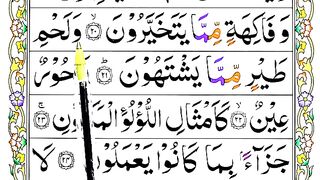 وَفَاكِهَةٍ مِّمَّا يَتَخَيَّرُوْنَ ﴿٢٠﴾ وَلَحْمِ
طَيْرٍ مِّمَّا يَشْتَهُوْنَ ﴿٢١﴾ وَحُوْرٌ
عِيْنٌ ﴿٢٢﴾ كَاَمْثَالِ اللُّؤْلُؤِ الْمَكْنُوْنِ ﴿٢٣﴾
جَزَآءًۢ بِمَا كَانُوْا يَعْمَلُوْنَ ﴿٢٤﴾ لَا